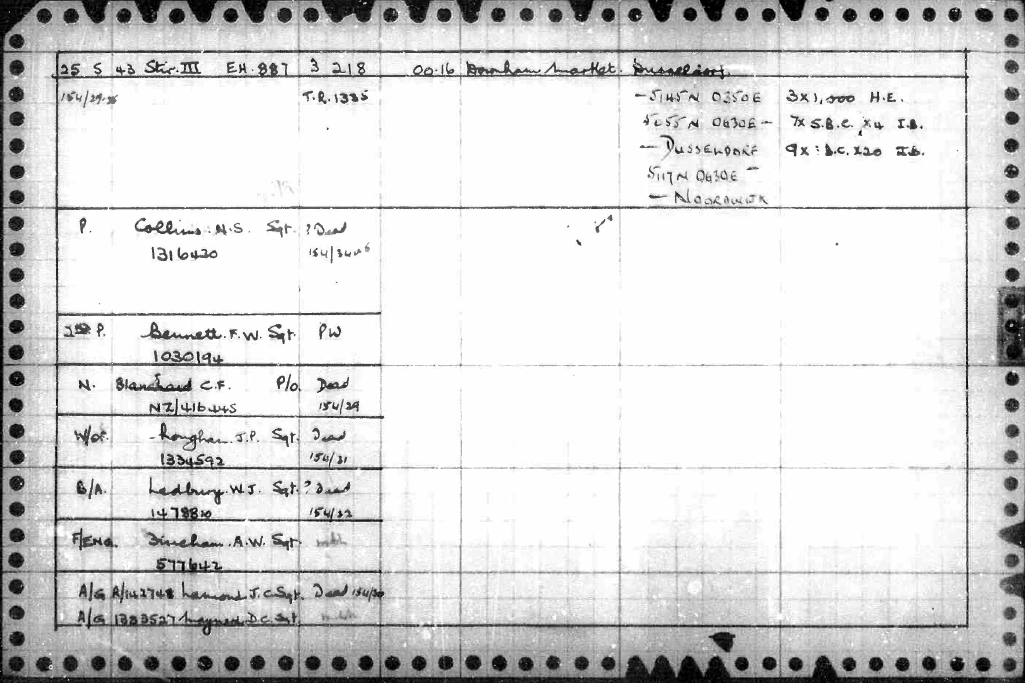 25 5 43 Stir. III EH.887 3 218 00.16 Downham Market. Dusseldorf
154/29-35 T.R. 1335 – 5145N 0350E 3x1,000 H.E.
5055N 0630E – 7x S.B.C. x4 I.B.
– DUSSELDORF 9x S.B.C. x20 I.B.
5117N 0630E –
– NOORDWIJK
P. Collins. N.S. Sgt. ? Dead
1316420
P. Bennett. F.W. Sgt. PW
1030194
N. Blanchard C.F. P/o. Dead
NZ/416445 154/29
W/OP. J.P. Sgt. Dead
1334592 154/31
B/A. Ledbury. W.J. Sgt. ? Dead
147882 154/32
F/ENG. A.W. Sgt.
577642
A/G R/142748 Lamond. J.C. Sgt. Dead 154/30
A/G 1383527 D.C. Sgt.